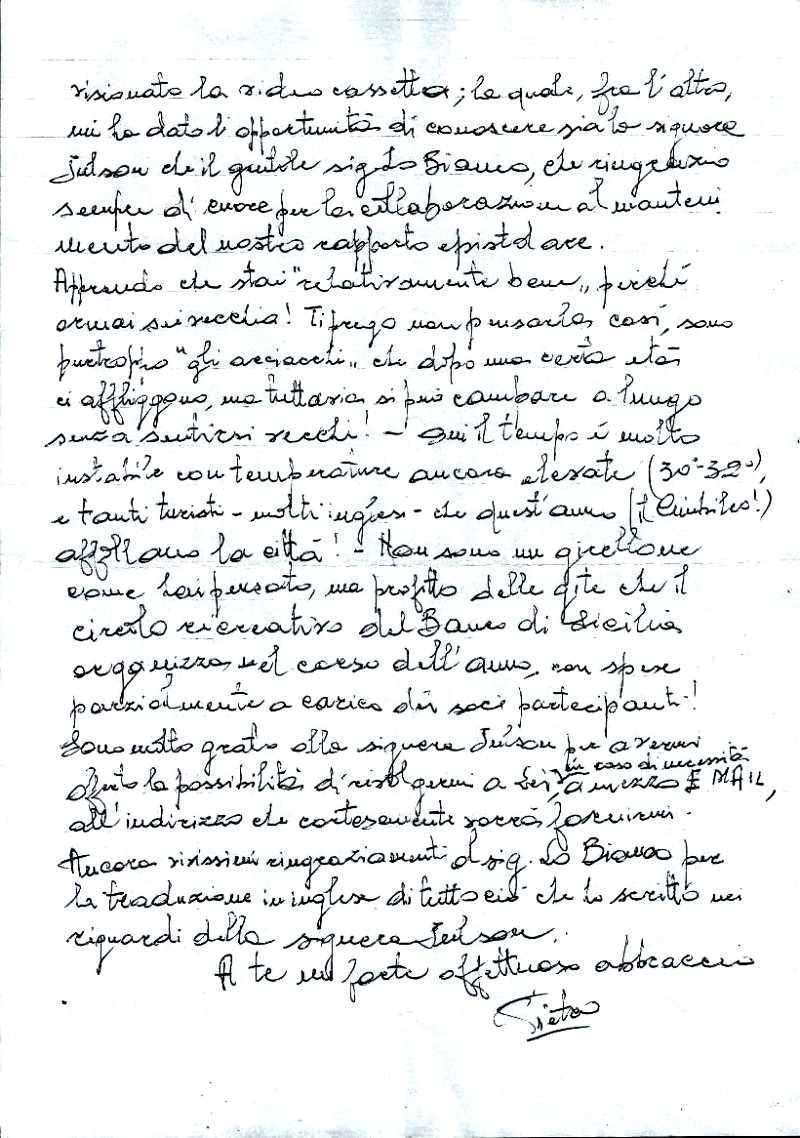 visionato la video cassetta; la quale, fra l'altro,
mi ha dato l'opportunità di conoscere sia la signora
Julson che il gentile sig. Lo Bianco, che ringrazio
sempre di cuore per la collaborazione al manteni
mento del nostro rapporto epistolare.
Apprendo che stai "relativamente bene„ perché
ormai sei vecchia! Ti prego non pensarla così, sono
purtroppo "gli acciacchi„ che dopo una certa età
ci affliggono, ma tuttavia si può campare a lungo
senza sentirsi vecchi! - Qui il tempo è molto
instabile con temperature ancora elevate (30°-32°),
e tanti turisti - molti inglesi - che quest'anno (il Giubileo!)
affollano la città! - Non sono un girellone
come hai pensato, ma profitto delle gite che il
circolo ricreativo del Banco di Sicilia
organizza nel corso dell'anno, con spese
parzialmente a carico dei soci partecipanti!
Sono molto grato alla signora Julson per avermi
in caso di necessità
offerto la possibilità di rivolgermi a Lei, a mezzo E MAIL,
all'indirizzo che cortesemente vorrà fornirmi.
Ancora vivissimi ringraziamenti al sig. Lo Bianco per
la traduzione in inglese di tutto ciò che ho scritto nei
riguardi della signora Julson.
A te un forte affettuoso abbraccio
Pietro